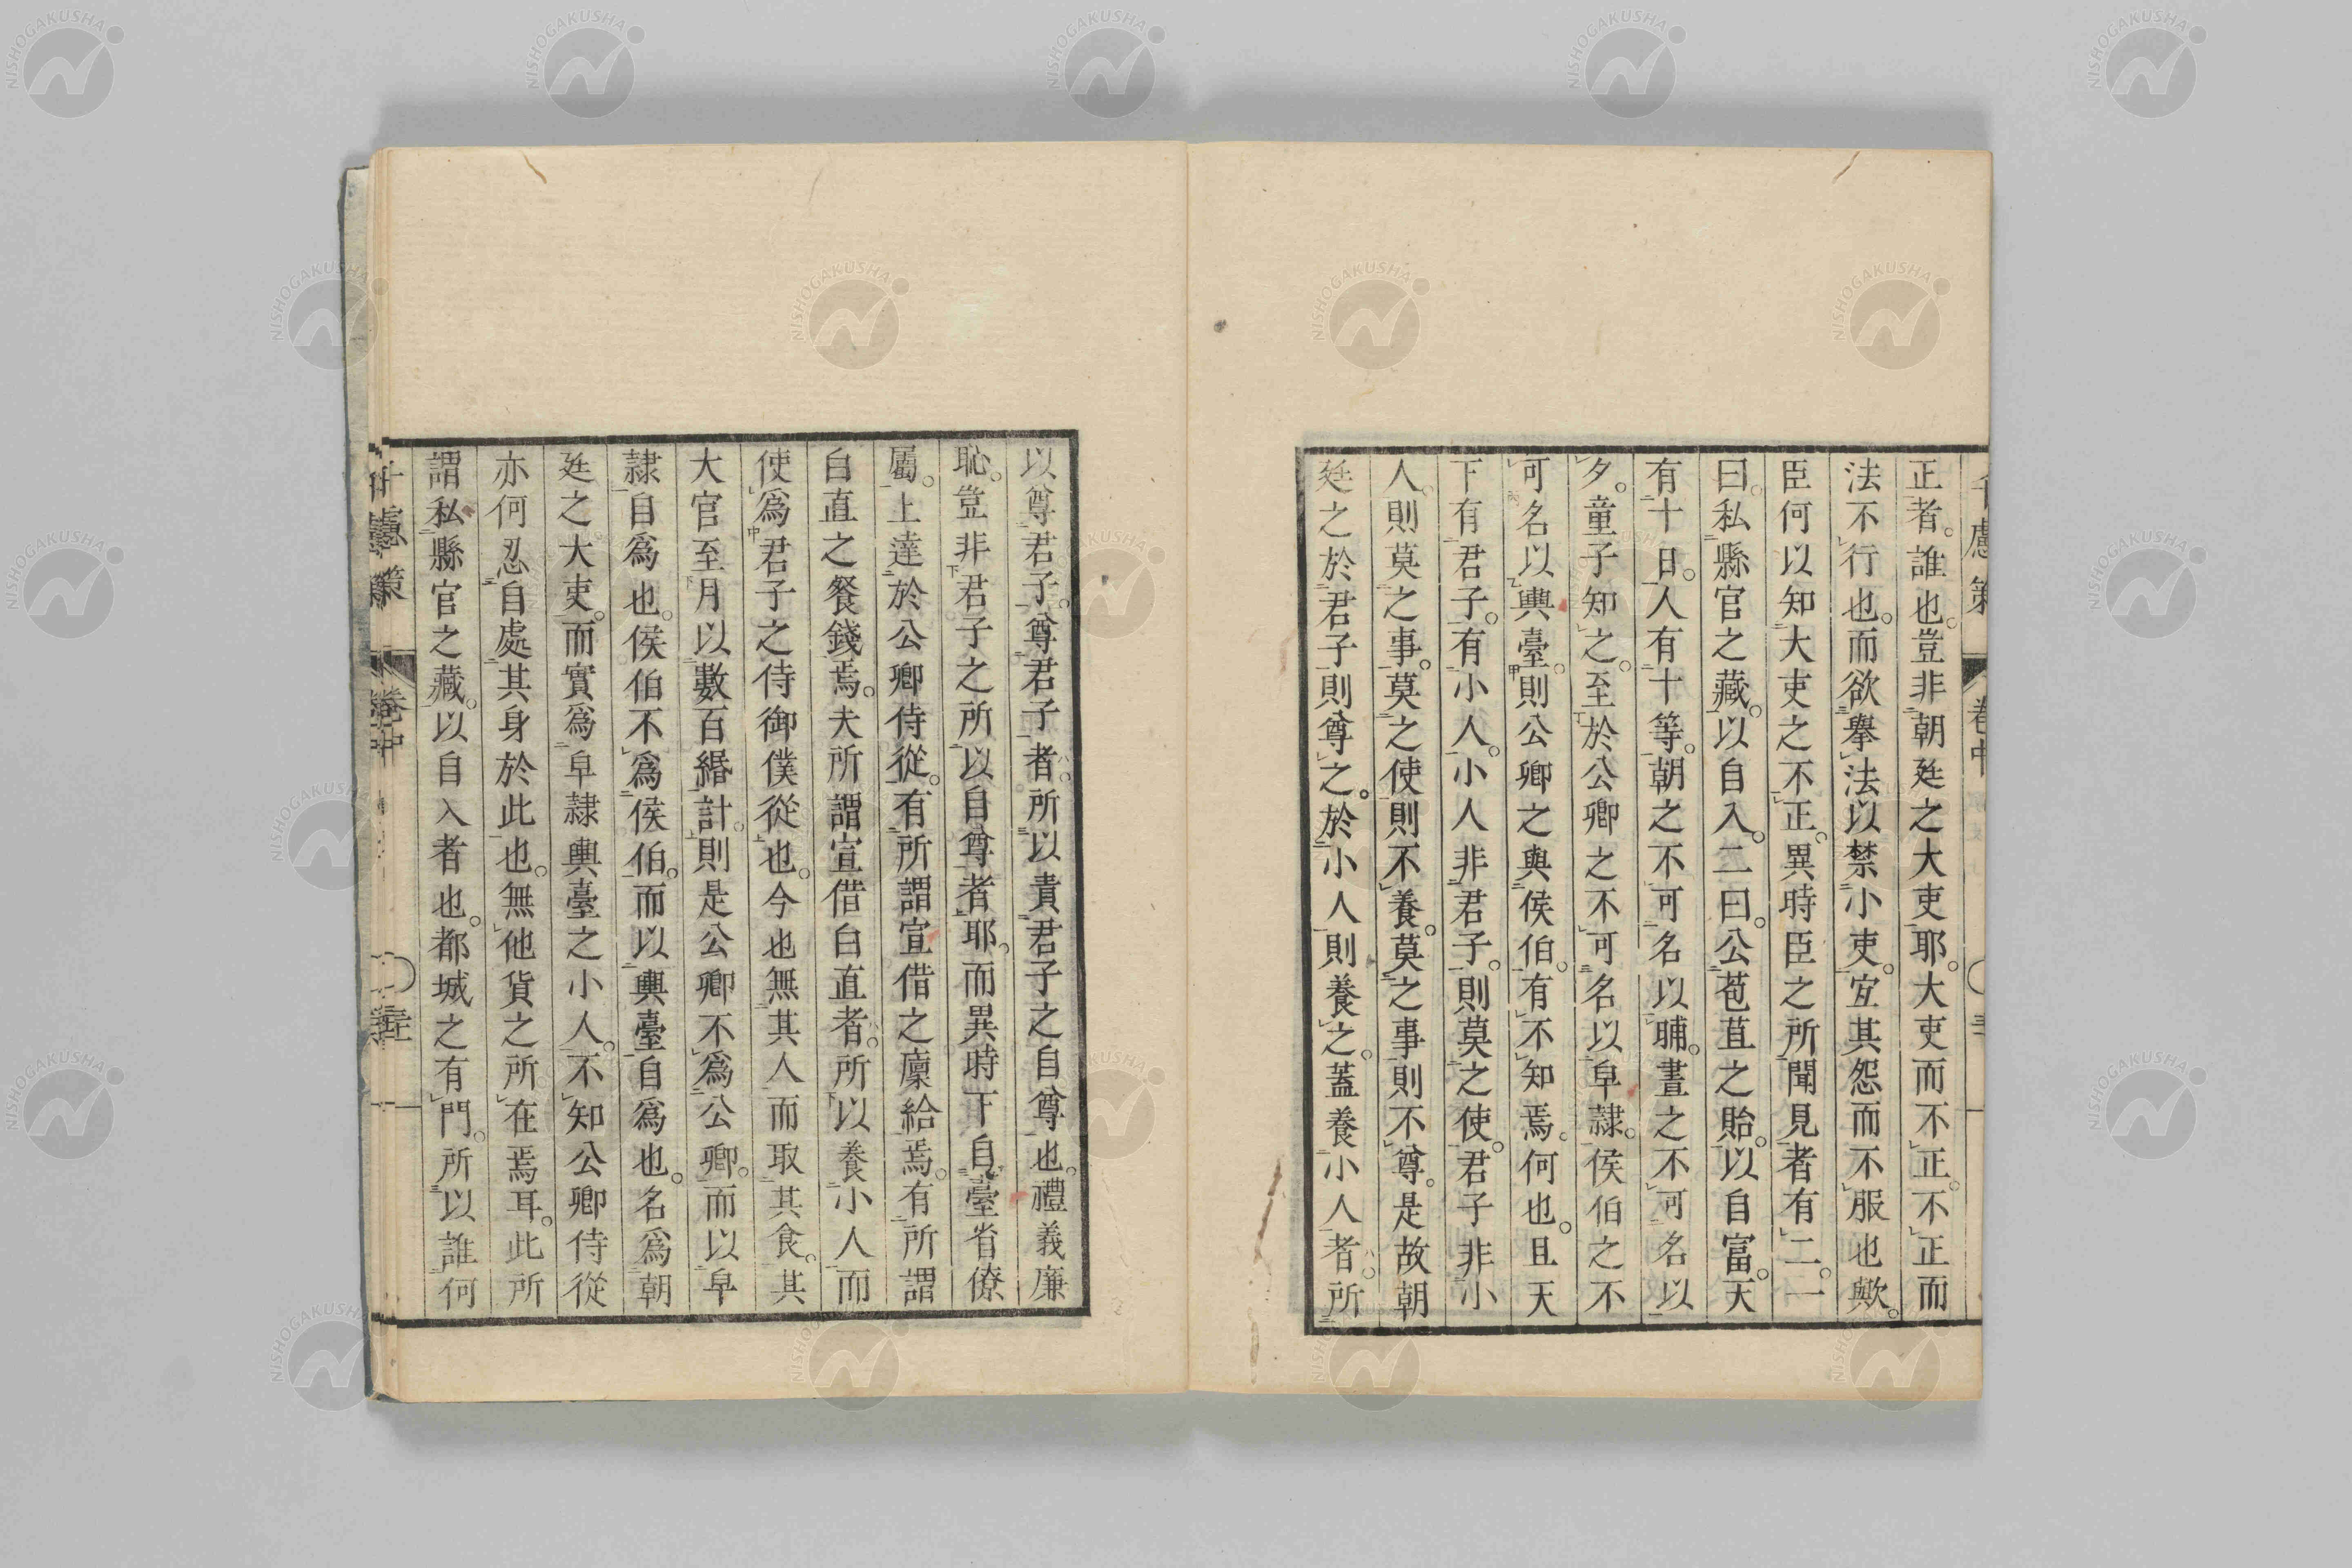 千慮策 卷中
正者。誰也。豈非朝廷之大吏耶。大吏而不正。不正而
法不行也。而欲擧法以禁小吏。宜其怨而不服也歟。
臣何以知大吏之不正。異時臣之所聞見者有二。一
曰。私縣官之藏。以自入。二曰。公苞苴之貽。以自富。天
有十日。人有十等。朝之不可名以晡。晝之不可名以
夕。童子知之。至於公卿之不可名以皁隷。侯伯之不
可名以輿臺。則公卿之與侯伯。有不知焉。何也。且天
下有君子。有小人。小人非君子。則莫之使。君子非小
人。則莫之事。莫之使則不養。莫之事則不尊。是故朝
廷之於君子則尊之。於小人則養之。蓋養小人者。所
以尊君子。尊君子者。所以貴君子之自尊也。禮義廉
恥。豈非君子之所以自尊者耶。而異時下自臺省僚
屬。上達於公卿侍從。有所謂宣借之廩給焉。有所謂
白直之餐錢焉。夫所謂宣借白直者。所以養小人而
使爲君子之侍御僕從也。今也無其人而取其食。其
大官至月以數百緡計。則是公卿不爲公卿。而以皁
隷自爲也。侯伯不爲侯伯。而以輿臺自爲也。名爲朝
廷之大吏。而實爲皁隷輿臺之小人。不知公卿侍從
亦何忍自處其身於此也。無他貨之所在焉耳。此所
謂私縣官之藏。以自入者也。都城之有門。所以誰何
千慮策 卷中